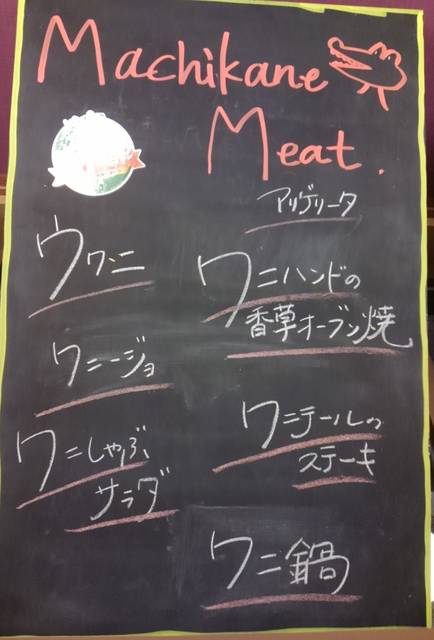 Machikane
Meat.
アリゲリータ
ウワニ
ワニハンドの
香草オーブン焼
ワニージョ
ワニしゃぶ
サラダ
ワニテールの
ステーキ
ワニ鍋